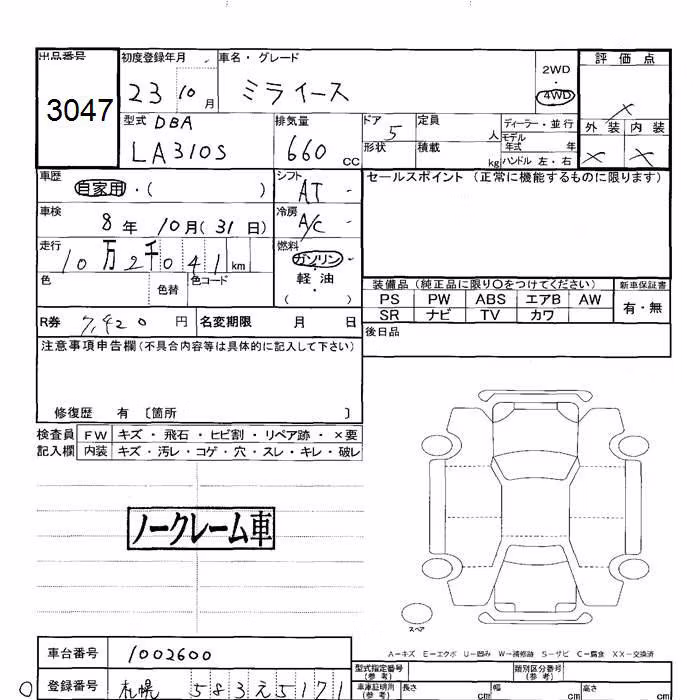 出品番号 初度登録年月 車名・グレード 評価点
3047 23 10月 ミライース 2WD 4WD ×
型式 DBA 排気量 ドア 定員 ディーラー・並行 外装 内装
LA310S 660 cc 5 人 モデル年式 年 × ×
形状 積載 kg ハンドル 左・右
車歴 シフト セールスポイント(正常に機能するものに限ります)
自家用・( ) AT
車検 冷房
8年 10月(31日) A/C
走行 燃料
10万2千041km ガソリン
色 色替 色コード 軽油
( )
装備品(純正品に限り○をつけてください) 新車保証書
PS PW ABS エアB AW 有・無
SR ナビ TV カワ
R券 7,420円 名変期限 月 日 後日品
注意事項申告欄(不具合内容等は具体的に記入して下さい)
修復歴 有 〔箇所 〕
検査員 FW キズ・飛石・ヒビ割・リペア跡・×要
記入欄 内装 キズ・汚レ・コゲ・穴・スレ・キレ・破レ
ノークレーム車
スペア
A−キズ E−エクボ U−凹み W−補修跡 S−サビ C−腐食 XX−交換済
車台番号 1002600 型式指定番号(参考) 類別区分番号(参考)
登録番号 札幌 583え5171 車庫証明用(参考) 長さ cm 幅 cm 高さ cm